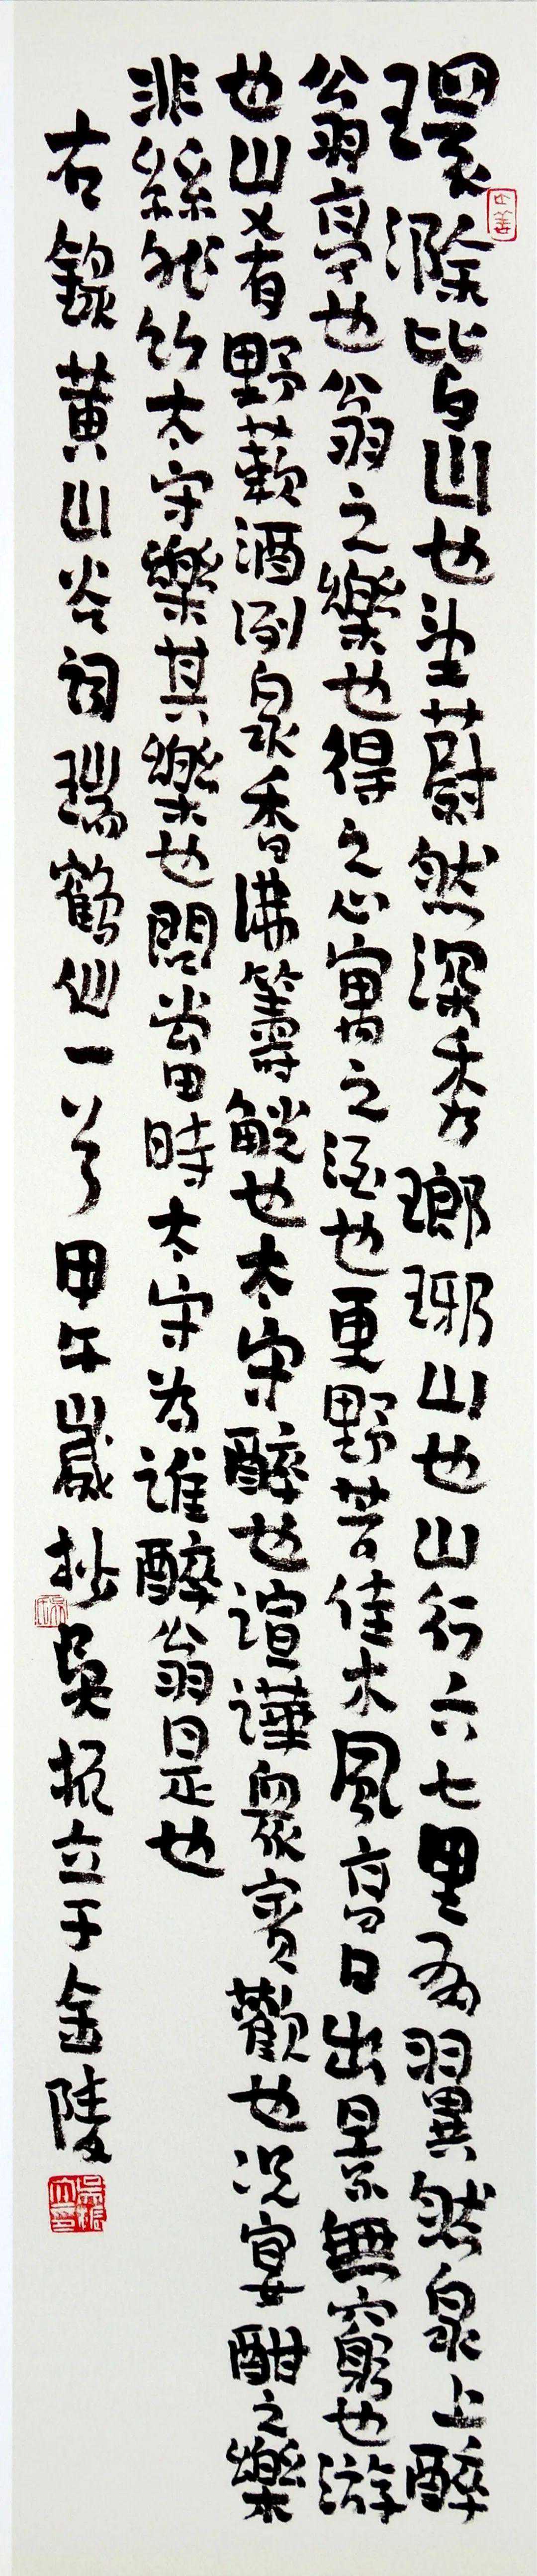 環滁皆山也望蔚然深秀瑯琊山也山行六七里有翼然泉上醉
翁亭也翁之樂也得之心寓之酒也更野芳佳木風高日出景無窮也游
也山肴野蔌酒洌泉香沸籌觥也太守醉也諠譁眾賓歡也況宴酣之樂
非絲非竹太守樂其樂也問當時太守為誰醉翁是也
右錄黃山谷詞瑞鶴仙一首甲午歲杪吳振立于金陵